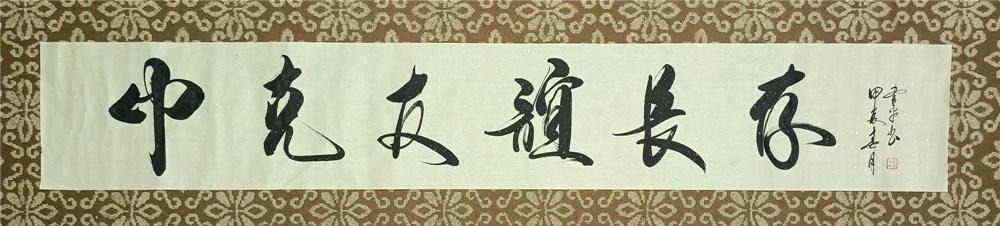 中克友谊长存
甲辰春月